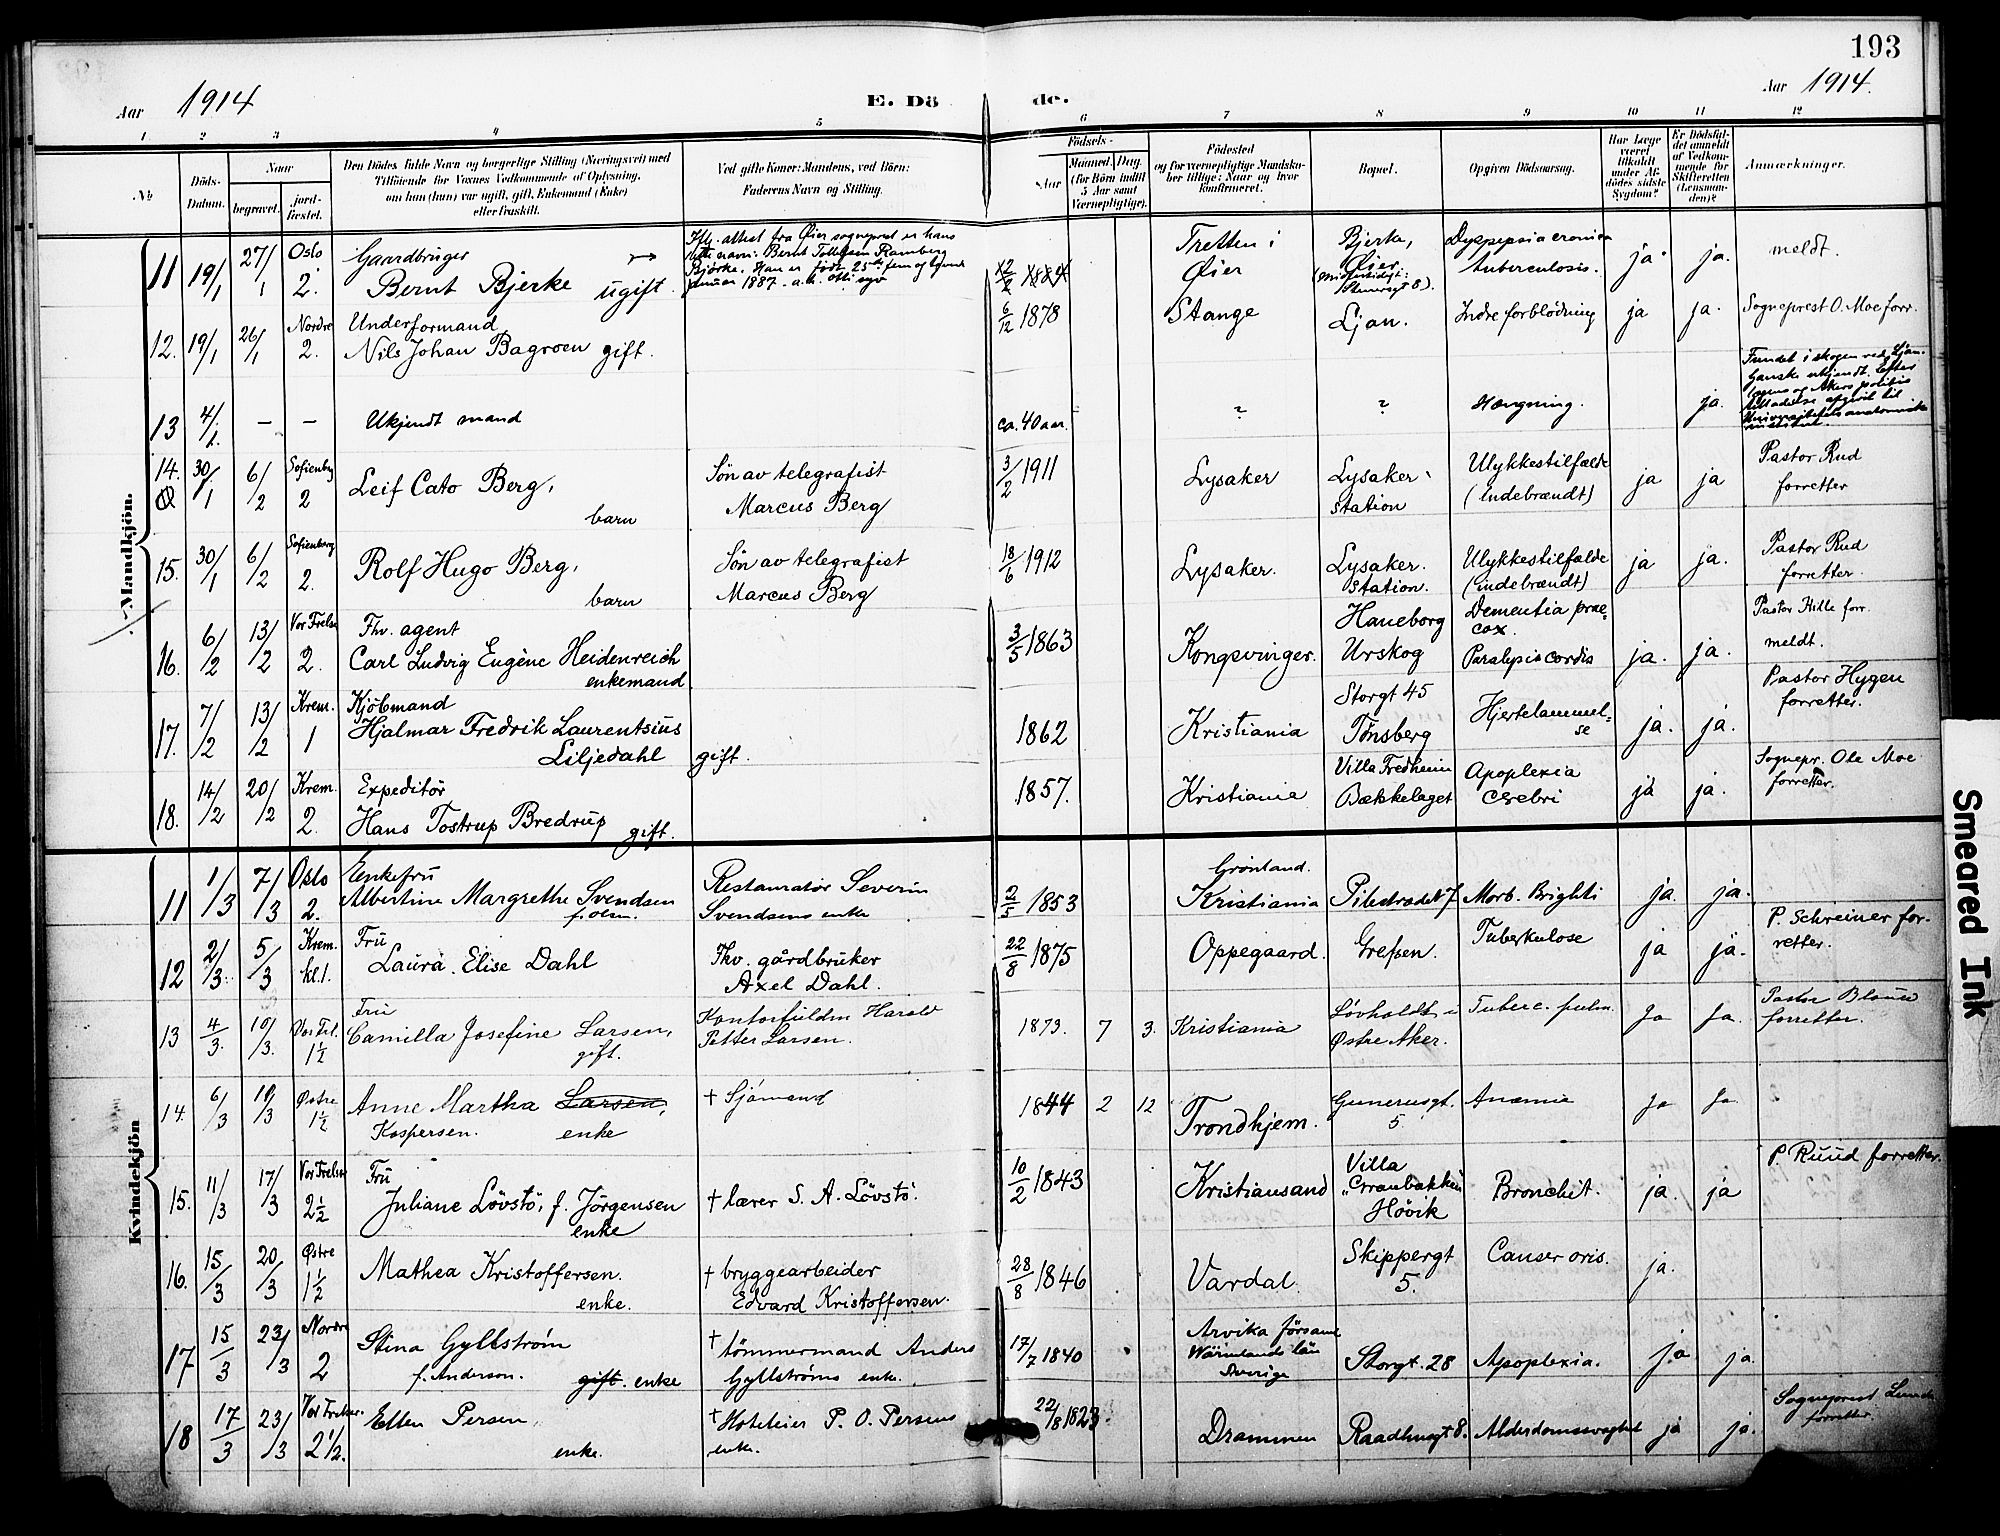 193
Aar 1914
E. Dö
de.
Aar 1914.
1 2 3 4 5 6 7 8 9 10 11 12
№
Döds-Datum.
Naar
begravet.
jord-fæstet.
Den Dödes fulde Navn og borgerlige Stilling (Næringsvei) med
Tilföiende for Voxnes Vedkommende af Oplysning,
om han (hun) var ugift, gift, Enkemand (Enke)
eller fraskilt.
Ved gifte Koner: Mandens, ved Börn:
Faderens Navn og Stilling.
Födsels-
Aar
Maaned. Dag.
(for Börn indtil
5 Aar samt
Værnepligtige).
Födested
og for værnepligtige Mandskaber tillige: Naar og hvor
konfirmeret.
Bopæl.
Opgiven Dödsaarsag.
Har Læge
været
tilkaldt
under Afdödes sidste
Sygdom?
Er Dödsfaldet anmeldt
af Vedkommende for
Skifteretten
(Lensmanden)?
Anmærkninger.
Mandkjön.
11 19/1 27/1 Oslo 2. Gaardbruger
Bernt Bjerke ugift.
Iflg. attest fra Øier sogneprest er hans
navn: Bernt Tollefsen
Bjørke. Han er født 25de
januar 1887.
Tretten i Øier
Bjerke, Øier
Dyspepsia cronica
tuberculosis.
ja. ja. meldt.
12. 19/1 26/1 Nordre 2. Underformand
Nils Johan Bagroen gift.
6/12 1878 Stange Ljan. Indre forblödning ja ja. Sogneprest O. Moe forr.
13 4/1. — — Ukjendt mand
ca. 40 aar. ? ? Hængning. ja.
Fundet i skogen ved Ljan.
Ganske ukjendt. Efter
og Akers politis
tilladelse afgivt til
Universitetets anatomiske
institut.
14. 30/1 6/2 Sofienberg 2 Leif Cato Berg, barn
Søn av telegrafist
Marcus Berg
3/2 1911 Lysaker Lysaker station
Ulykkestilfælde
(indebrændt) ja ja Pastor Rud
forretter
15. 30/1 6/2 Sofienberg 2. Rolf Hugo Berg, barn
Søn av telegrafist
Marcus Berg
18/6 1912 Lysaker. Lysaker. Station.
Ulykkestilfælde
(indebrændt) ja ja. Pastor Rud
forretter.
16. 6/2 13/2 Vor Frelse 2. Fhv. agent
Carl Ludvig Eugène Heidenreich
enkemand
3/5 1863 Kongsvinger. Haneborg Urskog
Dementia præcox.
Paralysis cordis ja. ja. Pastor Hille forr.
meldt.
17. 7/2 13/2 Krem. 1 Kjöbmand
Hjalmar Fredrik Laurentsius
Liljedahl gift.
1862 Kristiania Storgt 45 Tønsberg
Hjertelammelse ja. ja. Pastor Hygen
forretter.
18. 14/2 20/2 Krem. 2. Expeditör
Hans Tostrup Bredrup gift.
1857. Kristiania Villa Fredheim Bækkelaget
Apoplexia
cerebri ja ja. Sognepr. Ole Moe
forretter.
Kvindekjön
11 1/3 7/3 Oslo 2. Enkefru
Albertine Margrethe Svendsen
f. Olsen.
Restauratør Severin
Svendsens enke
2/5 1853 Grönland. Kristiania Pilestrædet 7 Morb. Brighti ja. ja.
12 2/3. 5/3 Krem. kl. 1. Fru
Laura Elise Dahl
Fhv. gårdbruker
Axel Dahl.
22/8 1875 Oppegaard. Grefsen. Tuberkulose ja ja. P. Schreiner forretter.
13 4/3. 10/3. Vor Frl. 1½ Fru
Camilla Josefine Larsen,
gift.
Harald
Petter Larsen.
1873. 7 3. Kristiania Løvholdt i
Østre Aker. Tuberc. pulm. Ja Ja. Pastor
forretter.
14. 6/3 10/3 Østre 1½ Anne Martha Larsen,
Kaspersen. enke
† Sjömand
1844 2 12 Trondhjem. Gunerusgt. 5. Anæmia Ja Ja.
15. 11/3 17/3 Vor Frelser 2½ Fru
Juliane Lövstö, f. Jörgensen
enke
† lærer S. A. Lövstö.
10/2 1843 Kristiansand Villa
"Granbakken
Hövik Bronchit. ja. ja P. Ruud forretter.
16. 15/3 20/3 Østre 1½ Mathea Kristoffersen.
enke.
† bryggearbeider
Edvard Kristoffersen.
28/8 1846 Vardal. Skippergt 5. Canser oris. ja.
17 15/3 23/3 Nordre 2 Stina Gyllström
f. Anderson. gift. enke
† tömmermand Anders
Gyllströms enke.
17/7 1840 Arvika församl
Wärmlands län
Sverige Storgt. 28 Apoplexia. ja ja.
18 17/3 23/3 Vor Frelser. 2½. Ellen Persen,
enke.
† Hoteleier P. O. Persens
enke.
22/8 1823. Drammen Raadhusgt 8. Alderdomssvaghet ja ja. Sogneprest Lunde
forretter.
Smeared Ink